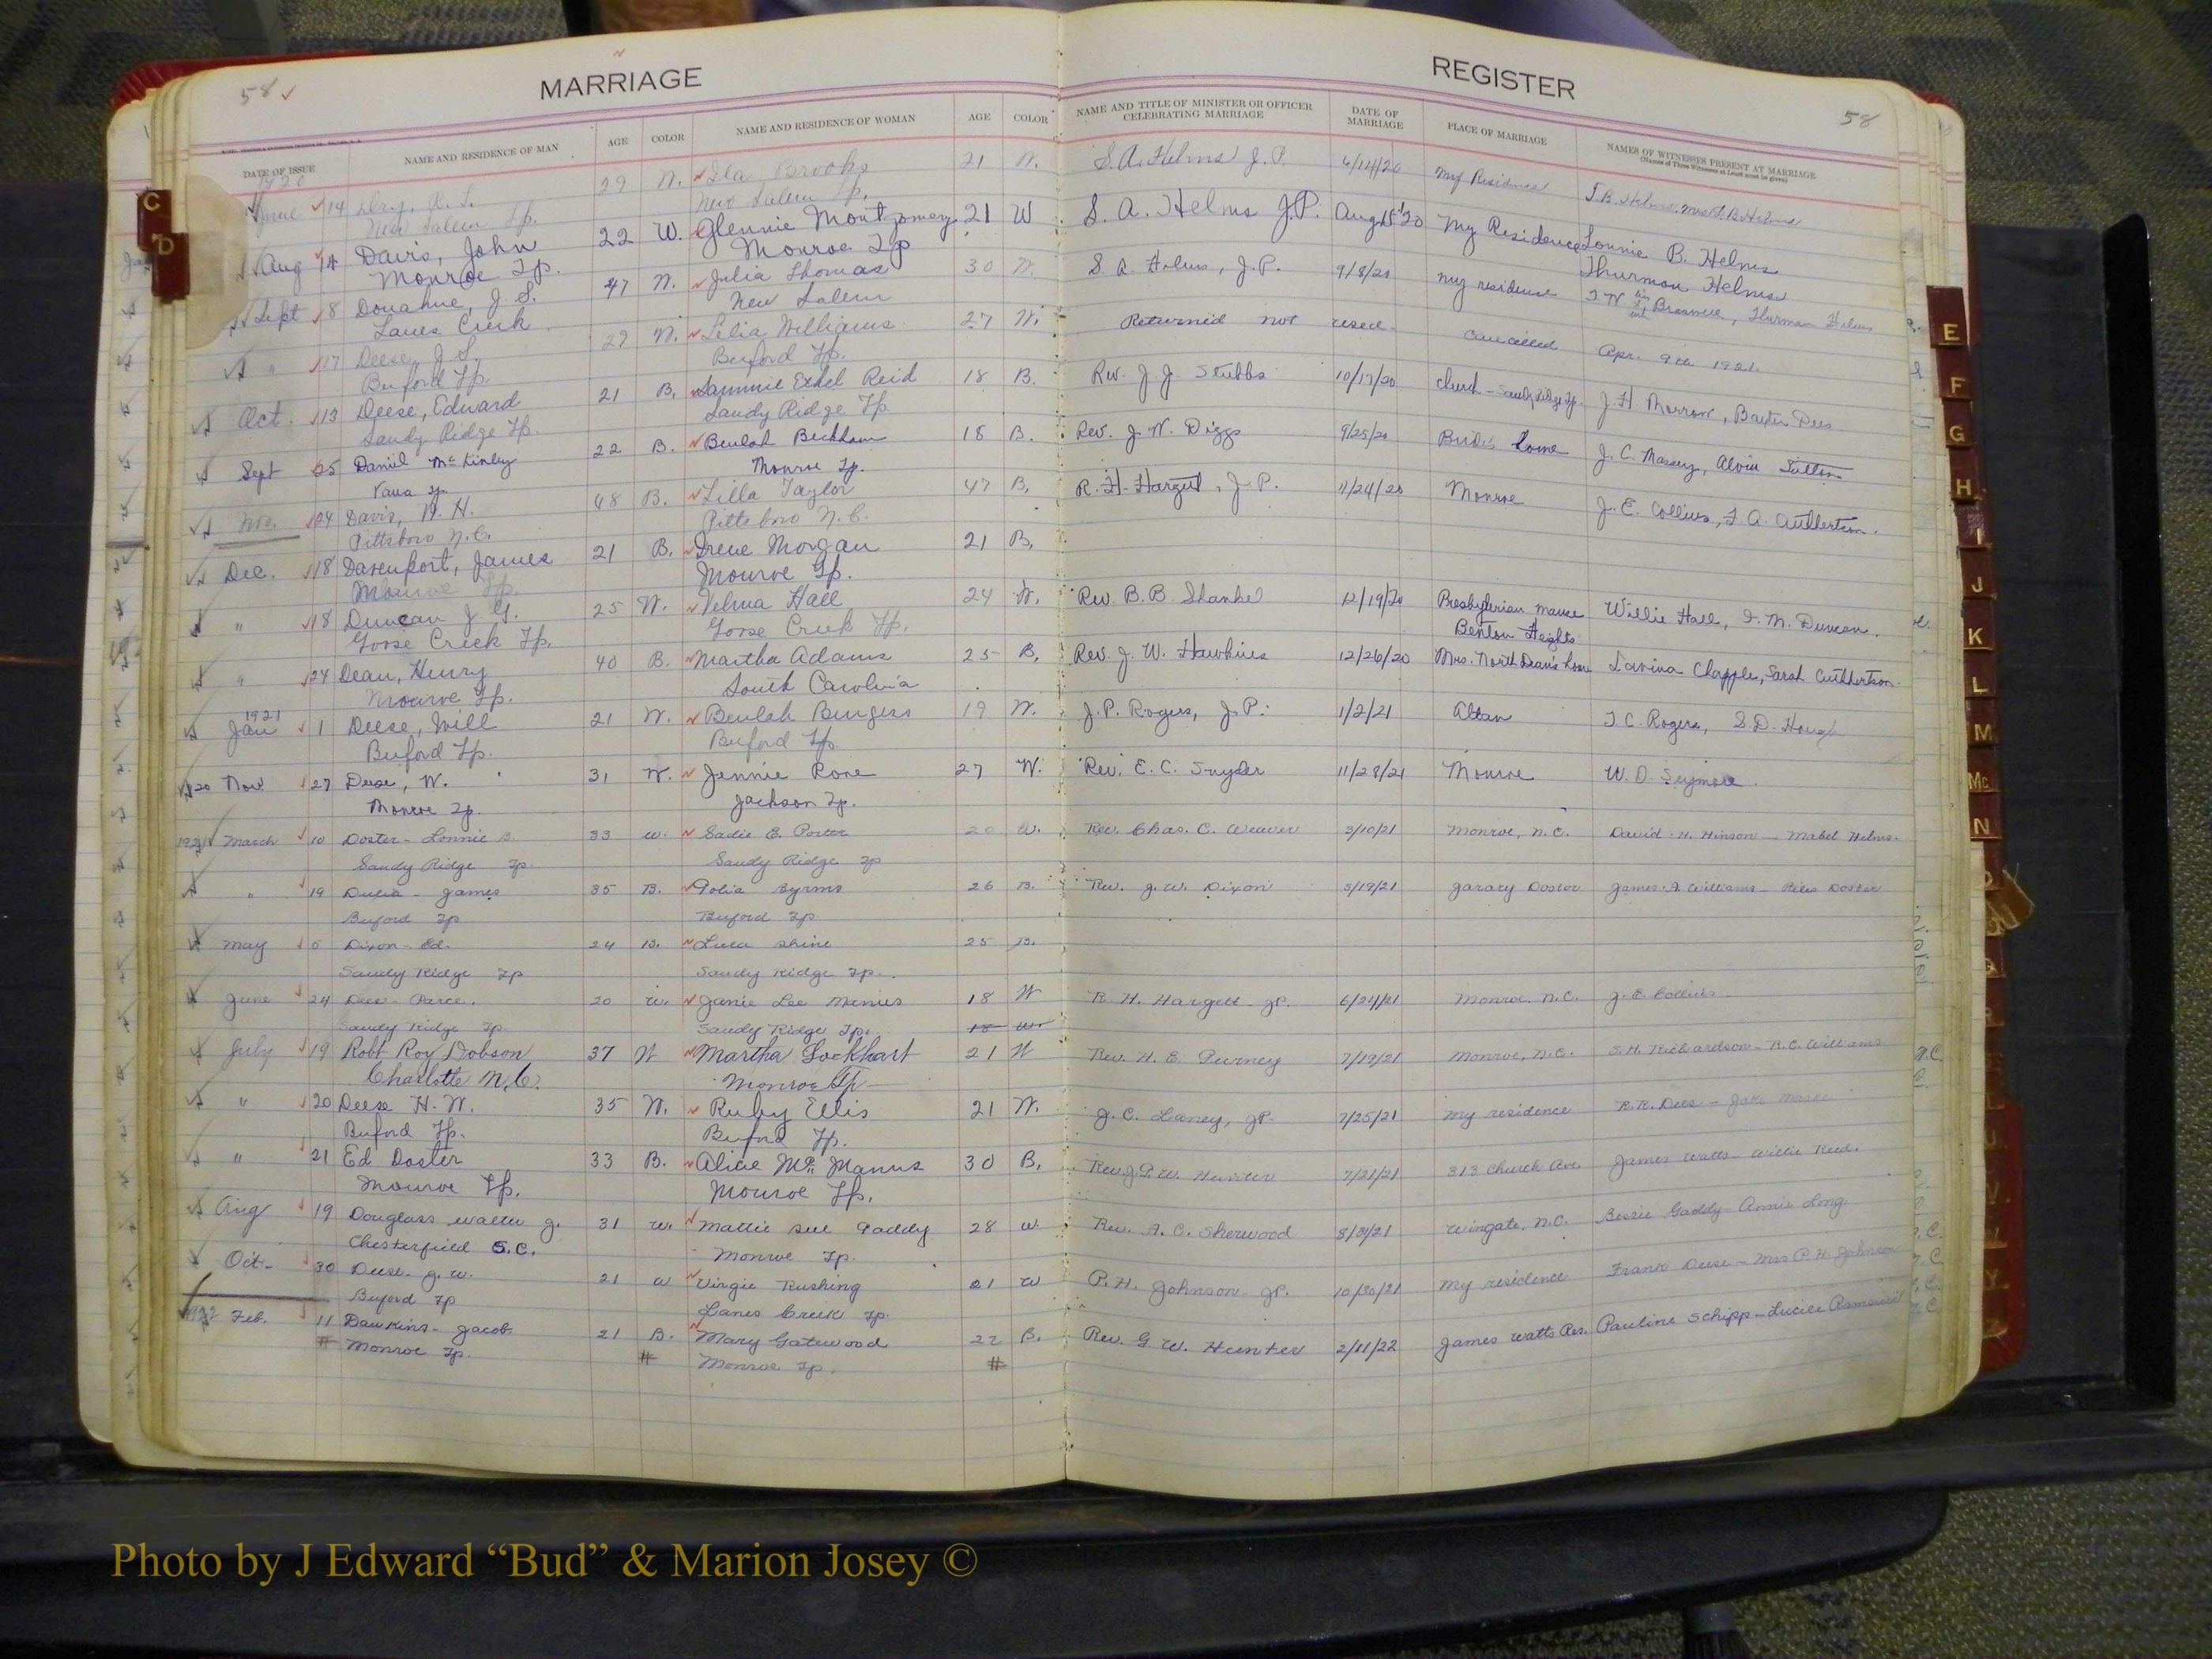 58
MARRIAGE
REGISTER
58
DATE OF ISSUE
NAME AND RESIDENCE OF MAN
AGE
COLOR
NAME AND RESIDENCE OF WOMAN
AGE
COLOR
NAME AND TITLE OF MINISTER OR OFFICER
CELEBRATING MARRIAGE
DATE OF
MARRIAGE
PLACE OF MARRIAGE
NAMES OF WITNESSES PRESENT AT MARRIAGE
(Names of Three Witnesses at Least must be given)
1920
June 14 Dry, R. L. 29 W. Ila Brooks 21 W. S. A. Helms J.P. 6/14/20 My Residence J. B. Helms, Mrs. J. B. Helms
New Salem Tp. New Salem Tp.
Aug 14 Davis, John 22 W. Glennie Montgomery 21 W S. A. Helms J.P. My Residence Lonnie B. Helms
Monroe Tp. Monroe Tp Thurman Helms
Sept 8 Donahue, J. S. 47 W. Julia Thomas 30 W. S. A. Helms, J.P. 9/8/20 my residence Thurman Helms
Lanes Creek New Salem
" 17 Deese, J. S. 29 W. Lelia Williams 27 W. Returned not used. Cancelled Apr. 9th 1921.
Buford Tp. Buford Tp.
Oct. 13 Deese, Edward 21 B. Sammie Ethel Reid 18 B. Rev. J. J. Stubbs 10/17/20 Church - Sandy Ridge Tp. J. H. Morrow, Baxter Dees
Sandy Ridge Tp. Sandy Ridge Tp
Sept 25 Daniel McKinley 22 B. Beulah Beckham 18 B. Rev. J. W. Diggs 9/25/20 Bride's home J. C. Massey, Alvin Sutton
Vance Tp. Monroe Tp.
Nov. 24 Davis, W. H. 48 B. Lilla Taylor 47 B. R. H. Hargett, J.P. 11/24/20 Monroe J. E. Collins, F. A. Cuthbertson.
Pittsboro N.C. Pittsboro N.C.
Dec. 18 Davenport, James 21 B. Irene Morgan 21 B.
Monroe Tp. Monroe Tp.
" 18 Duncan J. G. 25 W. Velma Hall 24 W. Rev. B. B. Shankel 12/19/20 Presbyterian manse Willie Hall, I. M. Duncan.
Goose Creek Tp. Goose Creek Tp. Benton Heights
" 24 Dean, Henry 40 B. Martha Adams 25 B. Rev. J. W. Hawkins 12/26/20 Mrs. North Dean's home Lavina Chapple, Sarah Cuthbertson.
Monroe Tp. South Carolina
1921
Jan 1 Deese, Will 21 W. Beulah Burgess 19 W. J. P. Rogers, J.P. 1/2/21 Altan T. C. Rogers, S. D.
Buford Tp. Buford Tp.
20 Nov 27 Deese, W. 31 W. Jennie Rone 27 W. Rev. E. C. Snyder 11/28/21 Monroe W. O. Seymore
Monroe Tp. Jackson Tp.
1921 March 10 Doster - Lonnie B. 33 W. Sadie E. Porter 20 W. Rev. Chas. C. Weaver 3/10/21 Monroe, N.C. David H. Hinson - Mabel Helms.
Sandy Ridge Tp. Sandy Ridge Tp
" 19 James 35 B. 26 B. Rev. J. W. Dixon 3/19/21 Doster James A. Williams - Doster
Buford Tp Buford Tp
May 5 Dixon - Ed. 24 B. Shine 25 B.
Sandy Ridge Tp Sandy Ridge Tp.
June 24 Dees - 20 W. Janie Lee 18 W R. H. Hargett J.P. 6/24/21 Monroe, N.C. J. E. Collins
Sandy Ridge Tp. Sandy Ridge Tp. 18 W.
July 19 Robt Roy Dobson 37 W Martha Lockhart 21 W Rev. H. E. Gurney 7/19/21 Monroe, N.C. S. H. Richardson - R. C. Williams
Charlotte N.C. Monroe Tp
" 20 Deese H. W. 35 W. Ruby Ellis 21 W. J. C. Laney, J.P. 7/25/21 My residence R. R. Dees
Buford Tp. Buford Tp.
" 21 Ed Doster 33 B. Alice McManus 30 B. Rev. G. W. Hunter 7/21/21 313 Church Ave. James Watts - Willie Reid.
Monroe Tp. Monroe Tp.
Aug 19 Douglass Walter J. 31 W. Mattie Sue Gaddy 28 W. Rev. A. C. Sherwood 8/31/21 Wingate, N.C. Bessie Gaddy - Annie Long
Chesterfield S.C. Monroe Tp.
Oct. 30 Deese - J. W. 21 W Virgie Rushing 21 W P. H. Johnson - J.P. 10/30/21 My residence Frank Deese - Mrs P. H. Johnson
Buford Tp Lanes Creek Tp.
1922 Feb. 11 Dawkins - Jacob 21 B. Mary Gatewood 22 B. Rev. G. W. Hunter 2/11/22 James Watts Res. Pauline Schipp - Lucile
# Monroe Tp. # Monroe Tp. #
C
D
E
F
G
H
I
J
K
L
M
Mc
N
Photo by J Edward “Bud” & Marion Josey ©